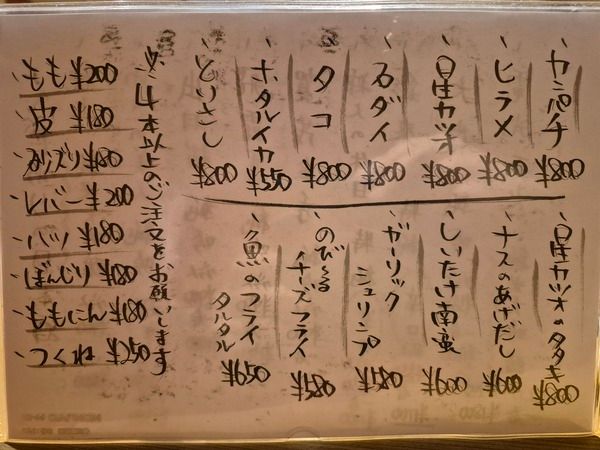 カンパチ ¥800
ヒラメ ¥800
星カツオ ¥800
石ダイ ¥800
タコ ¥800
ホタルイカ ¥550
とりさし ¥800
星カツオのタタキ ¥800
ナスのあげだし ¥600
しいたけ南蛮 ¥600
ガーリック
シュリンプ ¥580
のび〜る
チーズフライ ¥580
魚のフライ
タルタル ¥650
※4本以上のご注文をお願いします
もも ¥200
皮 ¥180
ずり ¥180
レバー ¥200
ハツ ¥180
ぼんじり ¥180
ももにん ¥180
つくね ¥250